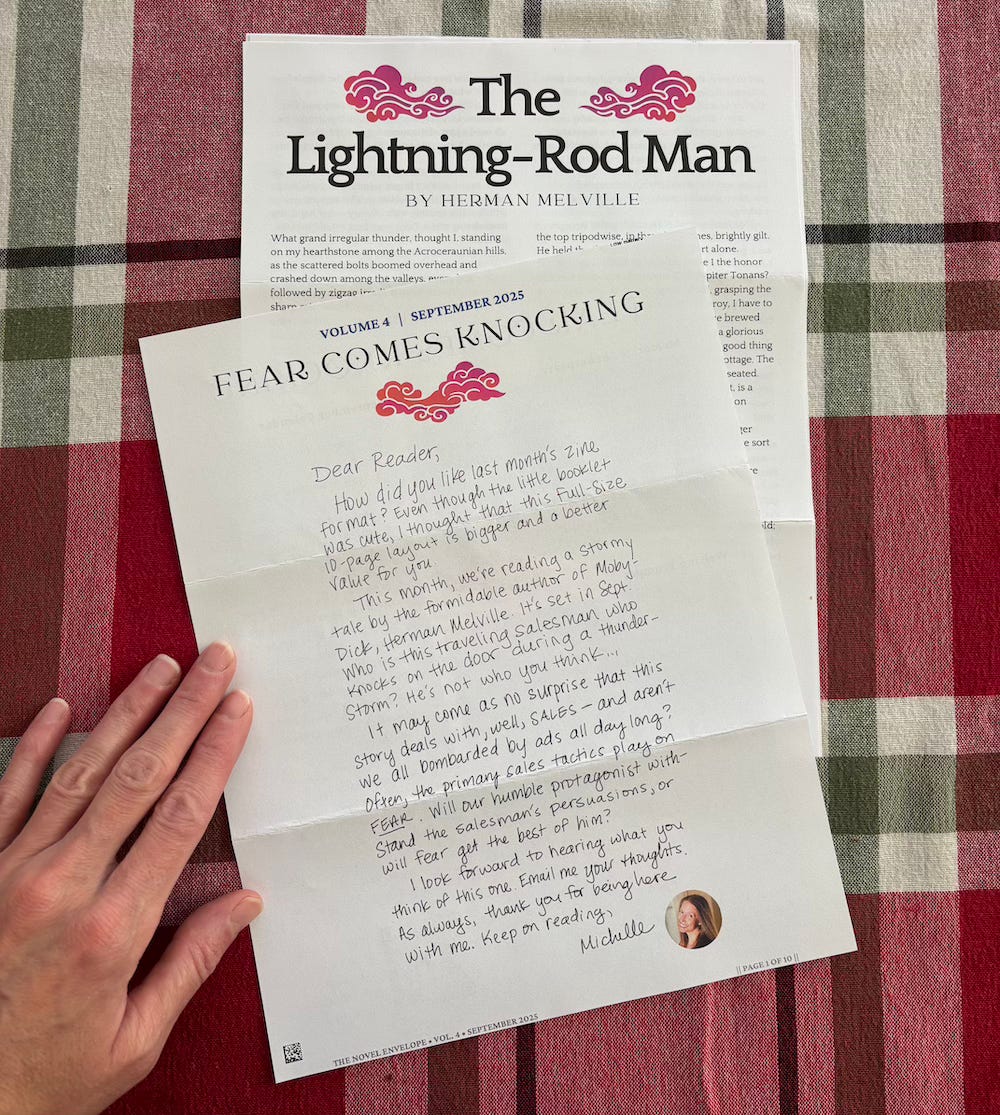 The
Lightning-Rod Man
BY HERMAN MELVILLE
What grand irregular thunder, thought I, standing
on my hearthstone among the Acroceraunian hills,
as the scattered bolts boomed overhead and
crashed down among the valleys,
followed by zigzag
the top tripodwise, brightly gilt.
He held rt alone.
e I the honor
piter Tonans?
grasping the
roy, I have to
e brewed
a glorious
good thing
ottage. The
seated.
t, is a
on
ger
e sort
old;
VOLUME 4 | SEPTEMBER 2025
FEAR COMES KNOCKING
Dear Reader,
How did you like last month's zine
format? Even though the little booklet
was cute, I thought that this Full-Size
10-page layout is bigger and a better
value for you.
This month, we're reading a stormy
tale by the formidable author of Moby-
Dick, Herman Melville. It's set in Sept.
Who is this traveling salesman who
knocks on the door during a thunder-
storm? He's not who you think...
It may come as no surprise that this
story deals with, well, SALES – and aren't
we all bombarded by ads all day long?
Often, the primary sales tactics play on
FEAR. Will our humble protagonist with-
stand the salesman's persuasions, or
will fear get the best of him?
I look forward to hearing what you
think of this one. Email me your thoughts.
As always, thank you for being here
with me. Keep on reading,
Michelle
|| PAGE 1 OF 10 ||
THE NOVEL ENVELOPE • VOL. 4 • SEPTEMBER 2025